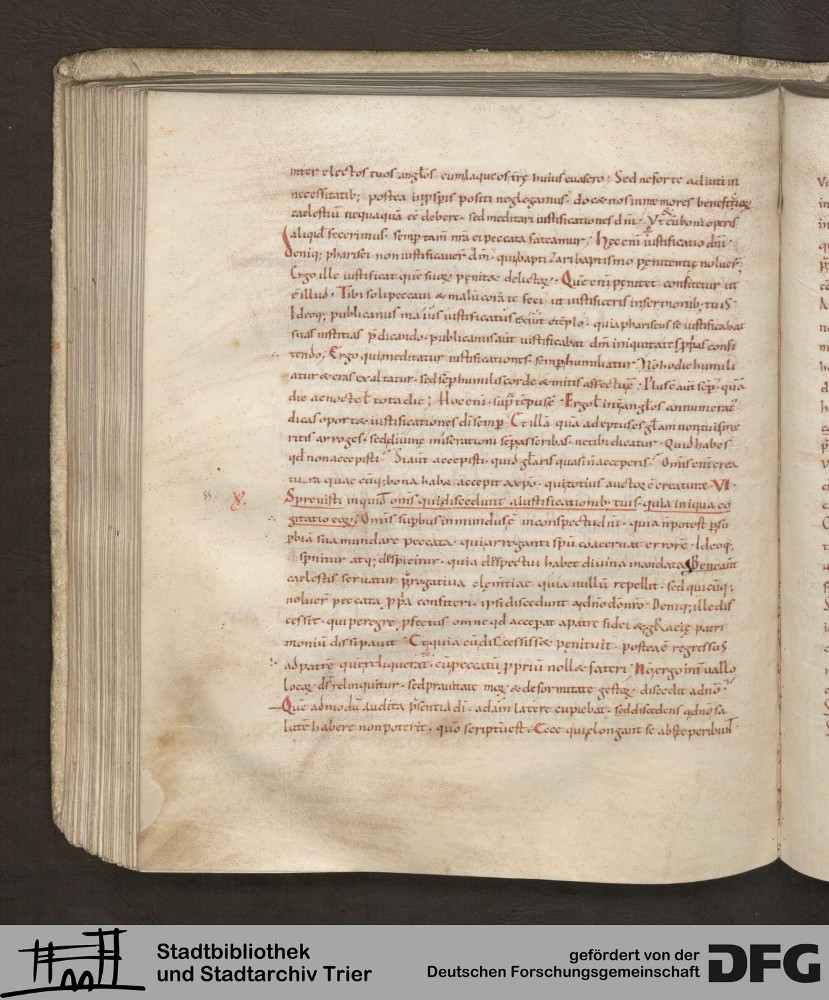 inter electos tuos anglos. eumlaqueos huius evasero; Sed neforte adiuti in
necessitatib; postea inpspis positi neglegamus. docet nos inmemores
caelestiū nequaquā eē debere. sed meditari iustificationes dn̄i. Vt cūboni operis
aliqid fecerimus. semp tam̄ nr̄a ei peccata fateamur; Hęc enī iustificatio dn̄i.
Deniq; pharisei non iustificaver̄ dn̄m. quibaptizari baptismo pęnitentię noluer̄;
Ergo ille iustificat quē suoꝝ penitet delictoꝝ. Quē enī penitet confitetur ut
ē illud. Tibi soli peccavi & malū corā te feci ut iustificeris insermonib; tuis
Ideoq; publicanus magis iustificatus exiit de tēplo. quia phariseus se iustificabat
suas iustitias p̄dicando. publicanus aut̄ iustificabat dn̄m iniquitates p̄prias confi
tendo; Ergo quimeditatur iustificationes. semp humiliatur. Nōhodie humili
atur & cras exaltatur. sed sēp humilis corde & mitis affectu ē.
die ac nocte tota die; Hoc enī
dicas oportet iustificationes dī semp. Et illā quā adeptus es gl̄am non tuis me
ritis arroges. sed divinę miserationi semp asscribas. ne tibi dicatur. Quid habes
qd̄ non accepisti. Si aut̄ accepisti. quid gl̄aris quasi n̄acceperis. Omnis enī crea
tura quaecūq; bona habet accepit axp̄o. qui totius auctor ē creaturę. VI.
Sprevisti inquid om̄is quidiscedunt aiustificationib. tuis. quia iniqua co
gitatio eoꝝ; Omīs supbus inmundus ē inconspectu dn̄i. quia n̄potest p̄ su
pbiā sua mundare peccata. qui arroganti spū coacervat errorē. Ideoq;
spnitur atq; despicitur. quia despectui habet divina mandata. Bene aut̄
caelestis servatur p̄rogativa clem̄tiae quia nullū repellit. sed quicūq;
noluer̄ peccata p̄p̄a confiteri. ipsi discedunt adn̄o dōn̄ro. Deniq; ille dis
cessit. qui peregre p̄fectus omne qd̄ acceperat apatre fidei & gRacię patri
moniū dissipavit. Et quia cū discessisset penituit. postea ē regressus
ad patrē quē reliquerat. cū peccatū p̄priū nollet fateri. Nō ergo intvallo
locoꝝ ds̄ relinquitur. sed pravitate moꝝ & deformitate gestoꝝ discedit adn̄o
Quē admodū audita p̄sentia dī. adā latere cupiebat. sed discedens adn̄o sa
lutē habere non poterit. quō scriptū est. Ecce qui elongant se abs te peribunt
Stadtbibliothek
und Stadtarchiv Trier
gefördert von der
Deutschen Forschungsgemeinschaft
DFG